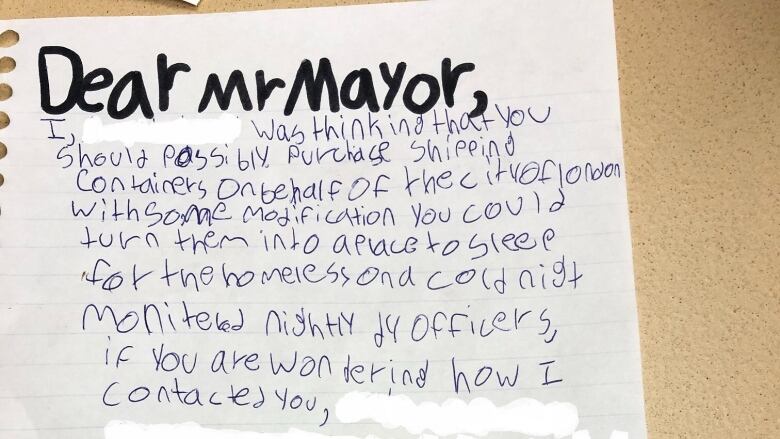 Dear Mr Mayor,
I, was thinking that you
should possibly purchase shipping
containers on behalf of the city of london
with some modification you could
turn them into a place to sleep
for the homeless on a cold night
monitered nightly by officers,
if you are wondering how I
contacted you,